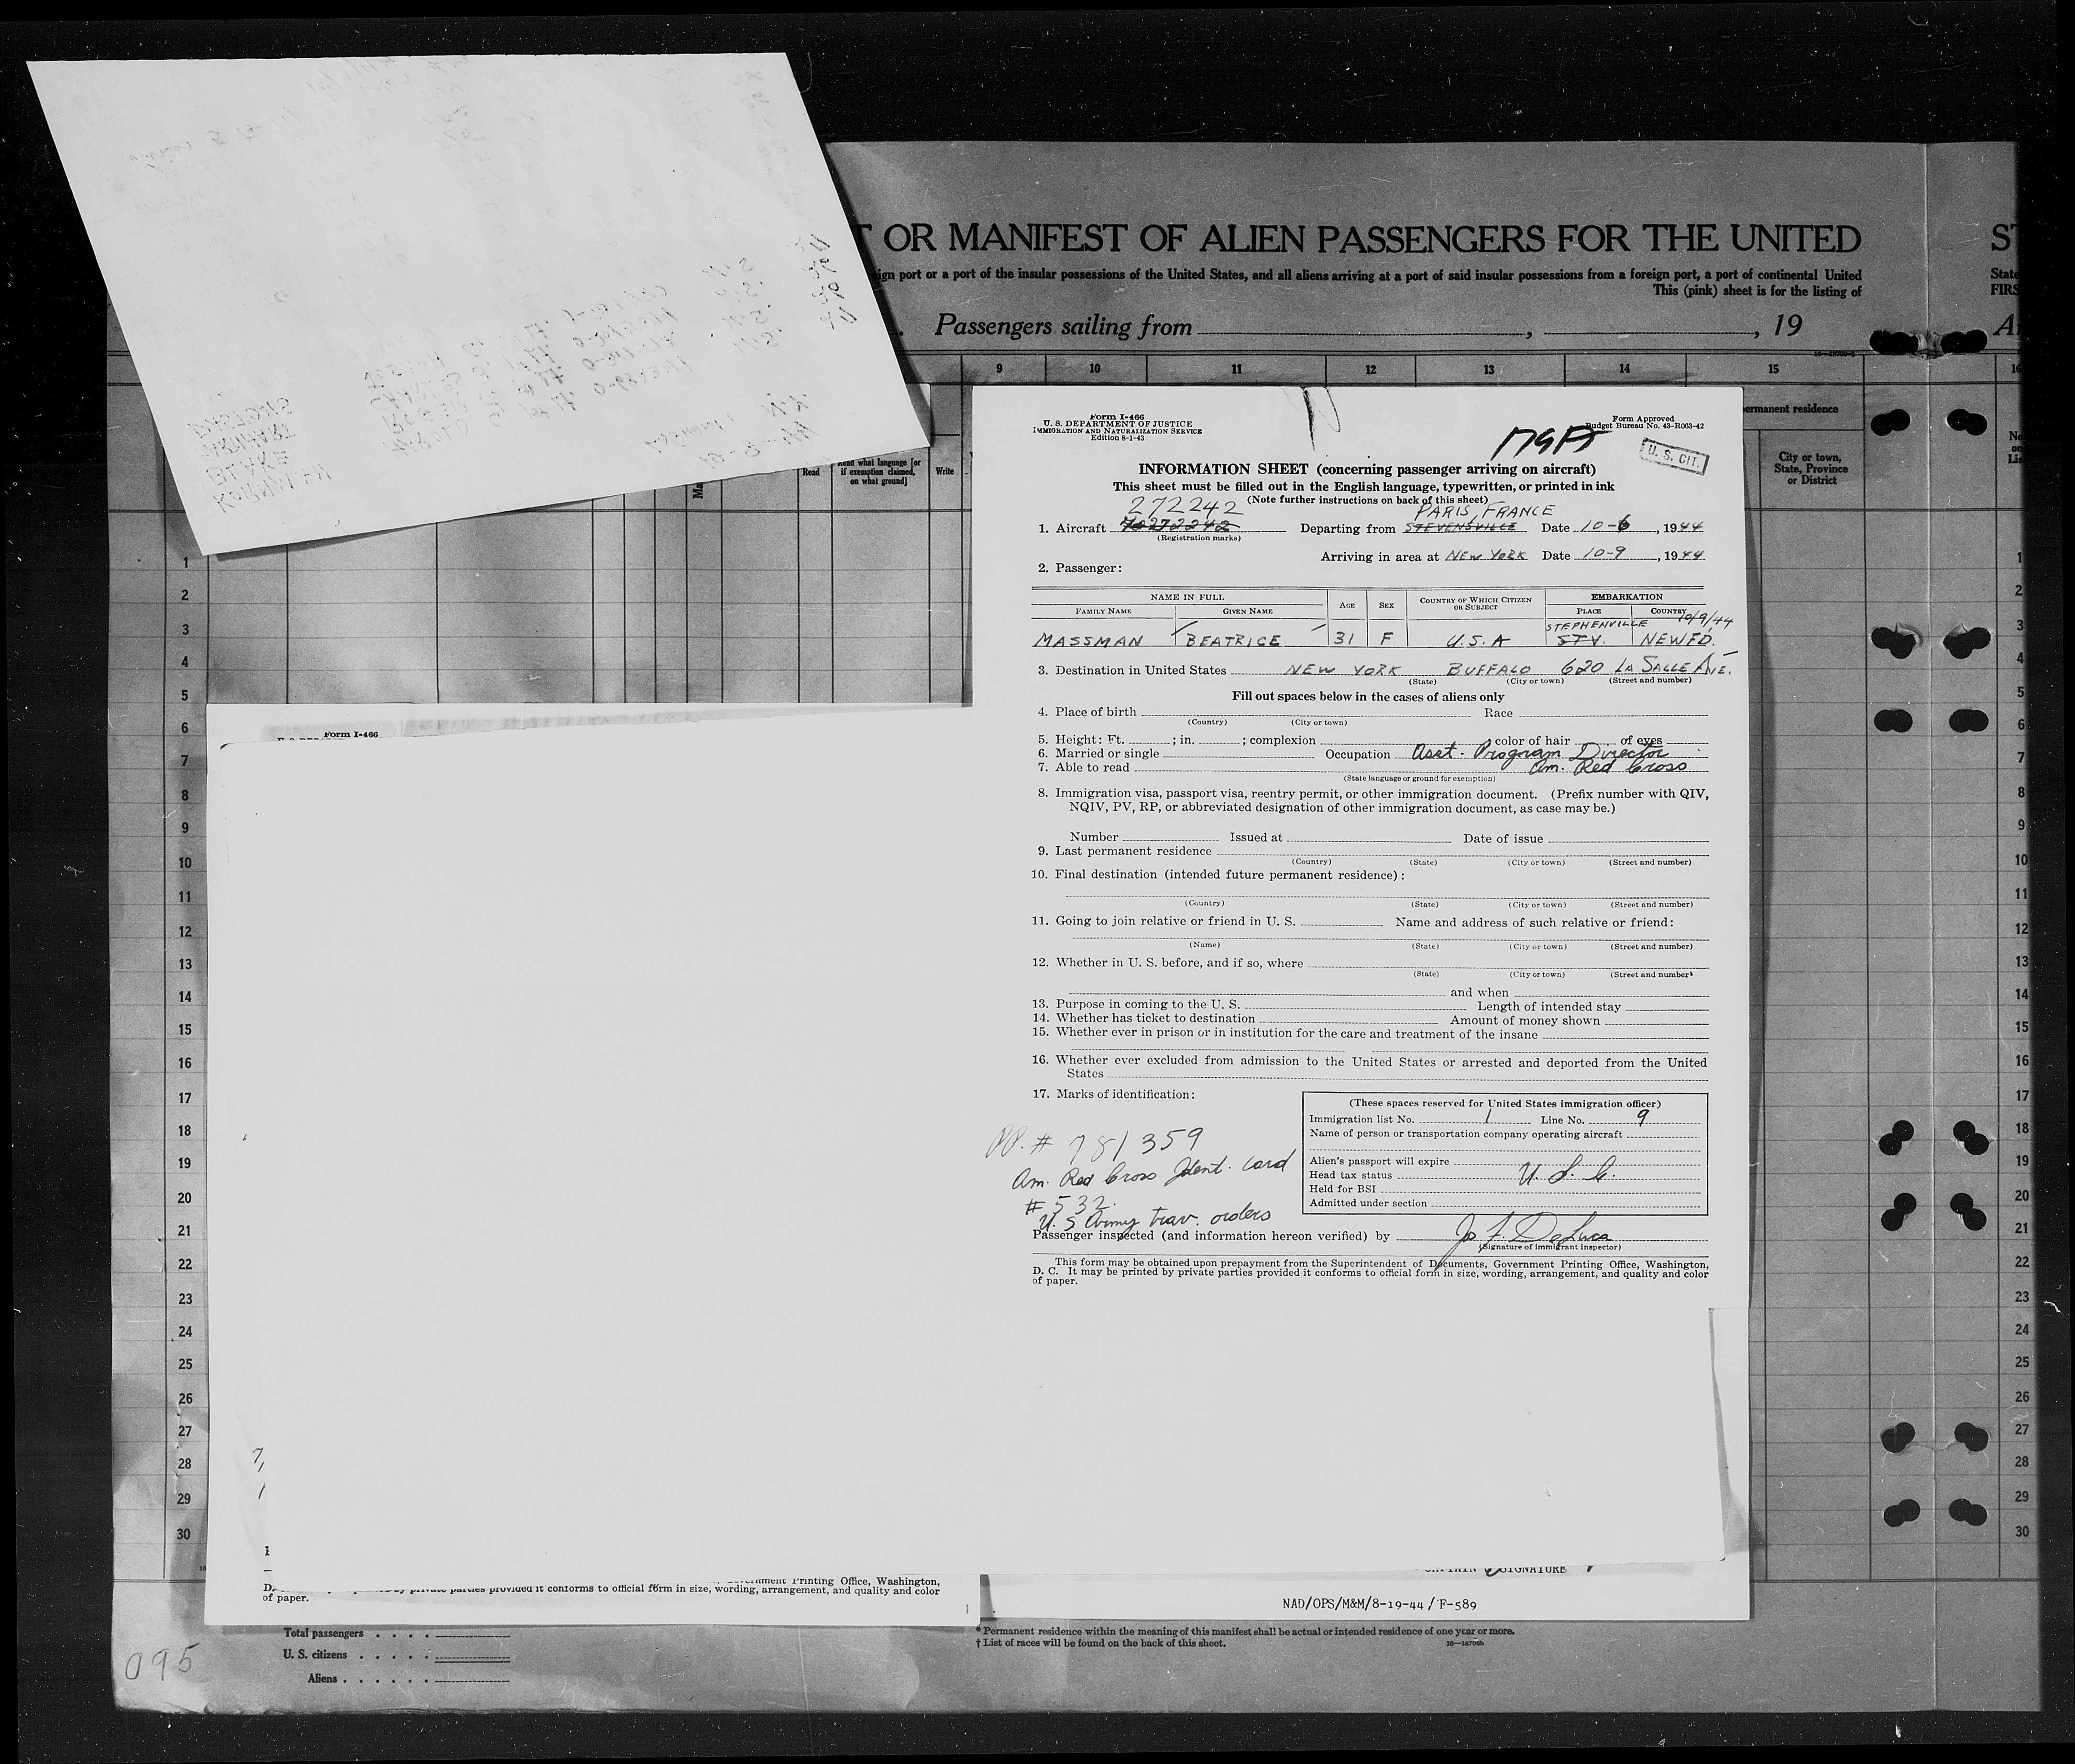 T OR MANIFEST OF ALIEN PASSENGERS FOR THE UNITED
ign port or a port of the insular possessions of the United States, and all aliens arriving at a port of said insular possessions from a foreign port, a port of continental United
This (pink) sheet is for the listing of
Passengers sailing from , , 19
9 10 11 12 13 14 15 16
ermanent residence
City or town,
State, Province
or District
Read
Read what language [or
if exemption claimed,
on what ground]
Write
State
FIRS
BLAKE
Form I-466
U. S. DEPARTMENT OF JUSTICE
IMMIGRATION AND NATURALIZATION SERVICE
Edition 8-1-43
Form Approved
Budget Bureau No. 43-R063-42
U. S. CIT.
INFORMATION SHEET (concerning passenger arriving on aircraft)
This sheet must be filled out in the English language, typewritten, or printed in ink
(Note further instructions on back of this sheet)
272242 PARIS, FRANCE
1. Aircraft Departing from STEVENSVILLE Date 10-6, 1944
(Registration marks)
Arriving in area at NEW YORK Date 10-9, 1944
2. Passenger:
NAME IN FULL
FAMILY NAME GIVEN NAME AGE SEX COUNTRY OF WHICH CITIZEN OR SUBJECT EMBARKATION
PLACE COUNTRY
STEPHENVILLE 10/9/44
MASSMAN BEATRICE 31 F U.S.A STV. NEWFD.
3. Destination in United States NEW YORK BUFFALO 620 LA SALLE AVE.
(State) (City or town) (Street and number)
Fill out spaces below in the cases of aliens only
4. Place of birth Race
(Country) (City or town)
5. Height: Ft. ; in. ; complexion , color of hair of eyes
6. Married or single Occupation Asst. Program Director
7. Able to read Am. Red Cross
(State language or ground for exemption)
8. Immigration visa, passport visa, reentry permit, or other immigration document. (Prefix number with QIV,
NQIV, PV, RP, or abbreviated designation of other immigration document, as case may be.)
Number Issued at Date of issue
9. Last permanent residence
(Country) (State) (City or town) (Street and number)
10. Final destination (intended future permanent residence):
(Country) (State) (City or town) (Street and number)
11. Going to join relative or friend in U. S. Name and address of such relative or friend:
(Name) (State) (City or town) (Street and number)
12. Whether in U. S. before, and if so, where
(State) (City or town) (Street and number)
and when
13. Purpose in coming to the U. S. Length of intended stay
14. Whether has ticket to destination Amount of money shown
15. Whether ever in prison or in institution for the care and treatment of the insane
16. Whether ever excluded from admission to the United States or arrested and deported from the United
States
17. Marks of identification:
PP. # 781359
Am. Red Cross Ident. card
# 532.
U. S Army trav. orders
(These spaces reserved for United States immigration officer)
Immigration list No. 1 Line No. 9
Name of person or transportation company operating aircraft
Alien's passport will expire
Head tax status U. S. C.
Held for BSI
Admitted under section
Passenger inspected (and information hereon verified) by Jo F. DeLuca
(Signature of immigrant inspector)
This form may be obtained upon prepayment from the Superintendent of Documents, Government Printing Office, Washington,
D. C. It may be printed by private parties provided it conforms to official form in size, wording, arrangement, and quality and color
of paper.
1
2
3
4
5
6
7
8
9
10
11
12
13
14
15
16
17
18
19
20
21
22
23
24
25
26
27
28
29
30
Form I-466
Printing Office, Washington,
by private parties provided it conforms to official form in size, wording, arrangement, and quality and color
of paper.
SIGNATURE
NAD/OPS/M&M/8-19-44/F-589
Total passengers
U. S. citizens
Aliens
* Permanent residence within the meaning of this manifest shall be actual or intended residence of one year or more.
† List of races will be found on the back of this sheet.
16—18706b
095
1
2
3
4
5
6
7
8
9
10
11
12
13
14
15
16
17
18
19
20
21
22
23
24
25
26
27
28
29
30